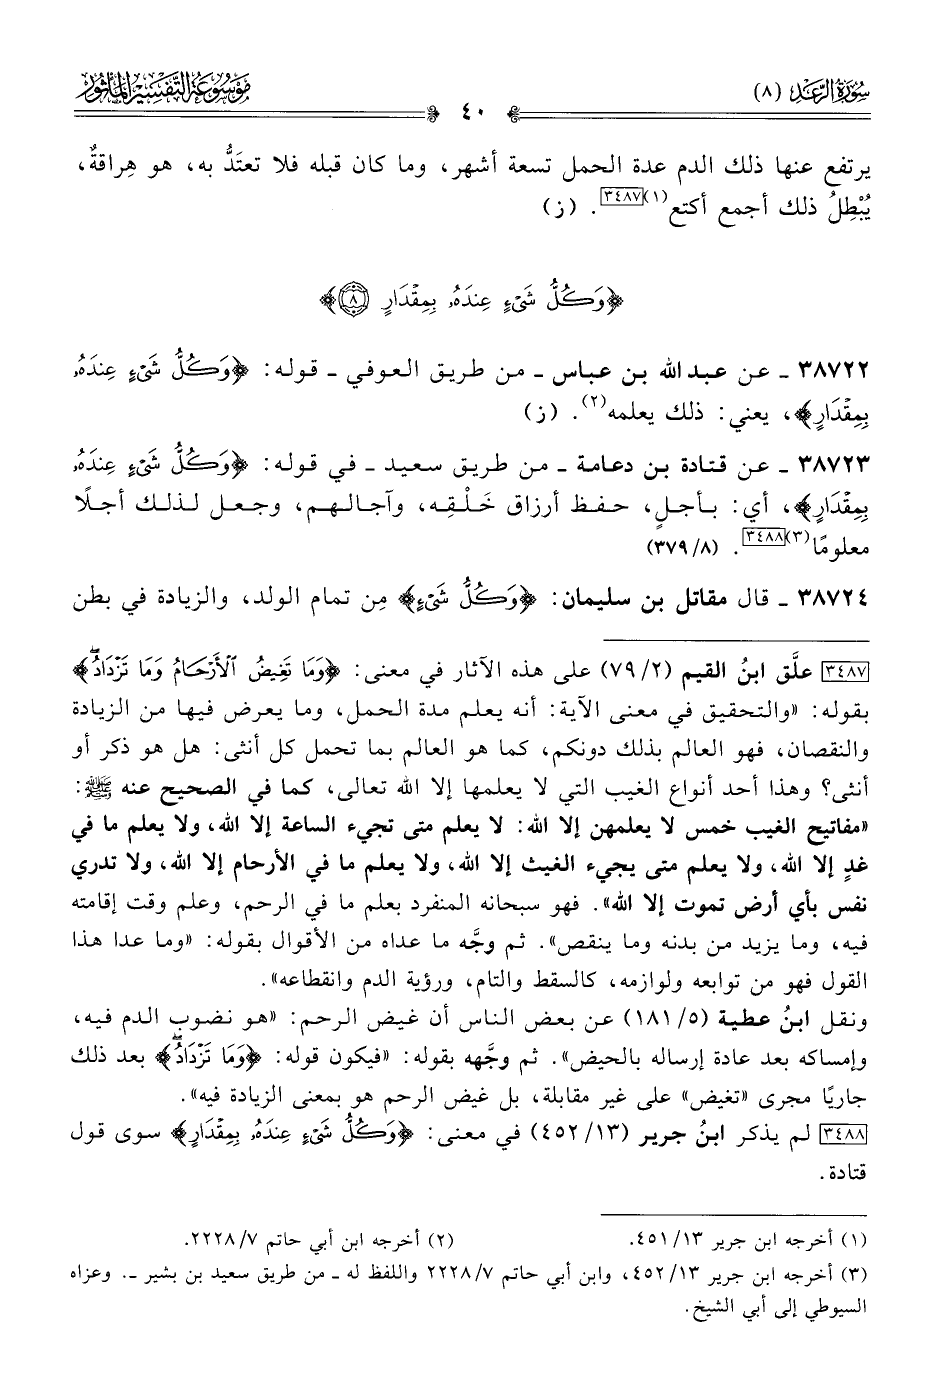 سُورَةُ الرَّعْد (٨)
٤٠
مَوْسُوعَة التَّفْسِير المَأثُور
يرتفع عنها ذلك الدم عدة الحمل تسعة أشهر، وما كان قبله فلا تعتَدُّ به، هو هِراقةٌ،
يُبْطِلُ ذلك أجمع أكتع(١)[٣٤٨٧]. (ز)
﴿وَكُلُّ شَىْءٍ عِندَهُۥ بِمِقْدَارٍ ۝٨﴾
٣٨٧٢٢ ـ عن عبد الله بن عباس ـ من طريق العوفي ـ قوله: ﴿وَكُلُّ شَىْءٍ عِندَهُۥ
بِمِقْدَارٍ﴾، يعني: ذلك يعلمه(٢). (ز)
٣٨٧٢٣ ـ عن قتادة بن دعامة ـ من طريق سعيد ـ في قوله: ﴿وَكُلُّ شَىْءٍ عِندَهُۥ
بِمِقْدَارٍ﴾، أي: بأجلٍ، حفظ أرزاق خَلْقِه، وآجالهم، وجعل لذلك أجلًا
معلومًا(٣)[٣٤٨٨]. (٨/ ٣٧٩)
٣٨٧٢٤ ـ قال مقاتل بن سليمان: ﴿وَكُلُّ شَىْءٍ﴾ مِن تمام الولد، والزيادة في بطن
[٣٤٨٧] علَّق ابنُ القيم (٢/ ٧٩) على هذه الآثار في معنى: ﴿وَمَا تَغِيضُ ٱلْأَرْحَامُ وَمَا تَزْدَادُۖ﴾
بقوله: «والتحقيق في معنى الآية: أنه يعلم مدة الحمل، وما يعرض فيها من الزيادة
والنقصان، فهو العالم بذلك دونكم، كما هو العالم بما تحمل كل أنثى: هل هو ذكر أو
أنثى؟ وهذا أحد أنواع الغيب التي لا يعلمها إلا الله تعالى، كما في الصحيح عنه ﷺ:
«مفاتيح الغيب خمس لا يعلمهن إلا الله: لا يعلم متى تجيء الساعة إلا الله، ولا يعلم ما في
غدٍ إلا الله، ولا يعلم متى يجيء الغيث إلا الله، ولا يعلم ما في الأرحام إلا الله، ولا تدري
نفس بأي أرض تموت إلا الله». فهو سبحانه المنفرد بعلم ما في الرحم، وعلم وقت إقامته
فيه، وما يزيد من بدنه وما ينقص». ثم وجَّه ما عداه من الأقوال بقوله: «وما عدا هذا
القول فهو من توابعه ولوازمه، كالسقط والتام، ورؤية الدم وانقطاعه».
ونقل ابنُ عطية (٥/ ١٨١) عن بعض الناس أن غيض الرحم: «هو نضوب الدم فيه،
وإمساكه بعد عادة إرساله بالحيض». ثم وجَّهه بقوله: «فيكون قوله: ﴿وَمَا تَزْدَادُۖ﴾ بعد ذلك
جاريًا مجرى «تغيض» على غير مقابلة، بل غيض الرحم هو بمعنى الزيادة فيه».
[٣٤٨٨] لم يذكر ابنُ جرير (١٣/ ٤٥٢) في معنى: ﴿وَكُلُّ شَىْءٍ عِندَهُۥ بِمِقْدَارٍ﴾ سوى قول
قتادة.
(١) أخرجه ابن جرير ١٣/ ٤٥١. (٢) أخرجه ابن أبي حاتم ٧/ ٢٢٢٨.
(٣) أخرجه ابن جرير ١٣/ ٤٥٢، وابن أبي حاتم ٧/ ٢٢٢٨ واللفظ له ـ من طريق سعيد بن بشير ـ. وعزاه
السيوطي إلى أبي الشيخ.